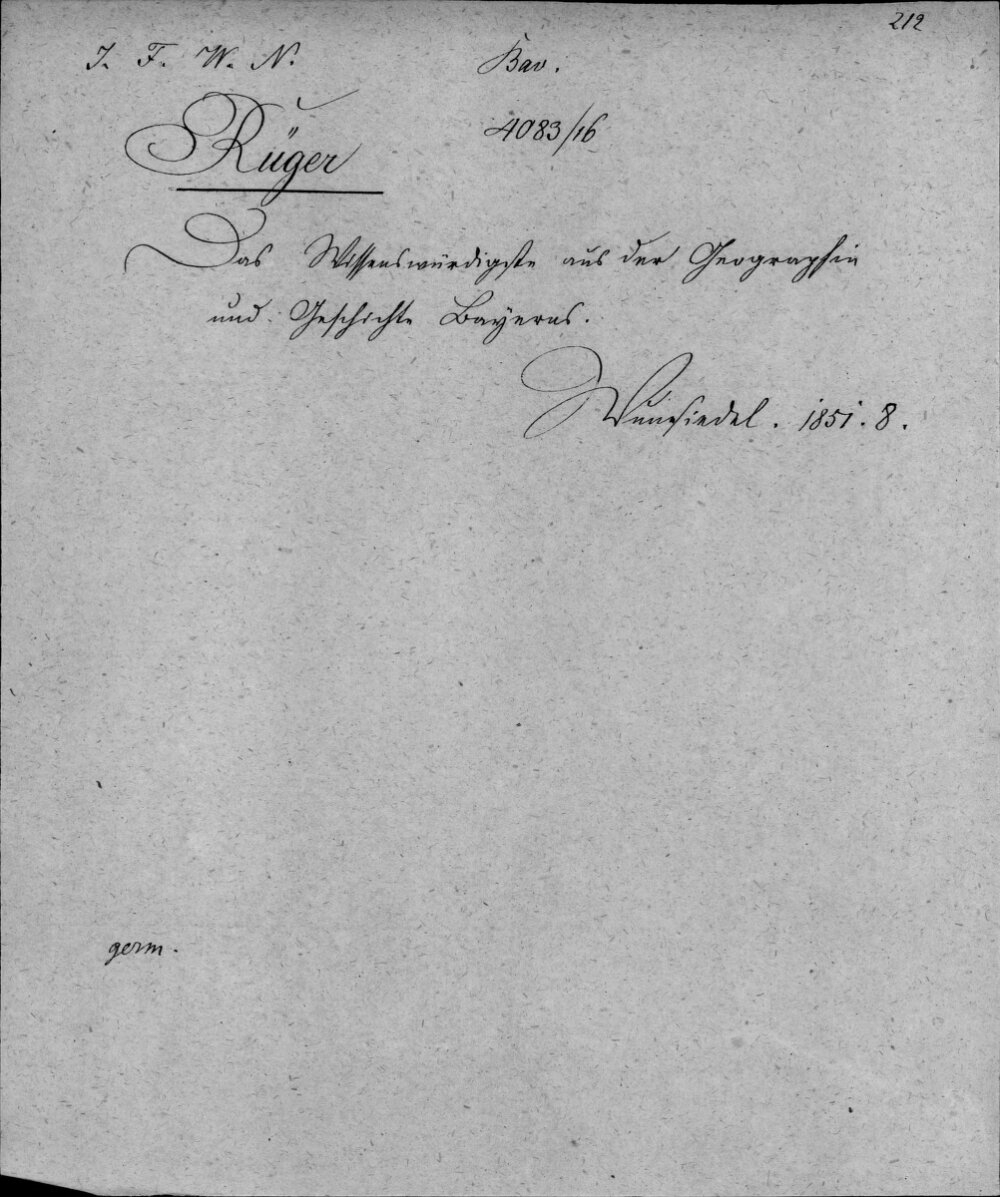 212
J. F. W. N.
Bav.
4083/16
Rüger
Das Wissenswürdigste aus der Geographie
und Geschichte Bayerns.
Wunsiedel. 1851. 8.
germ.